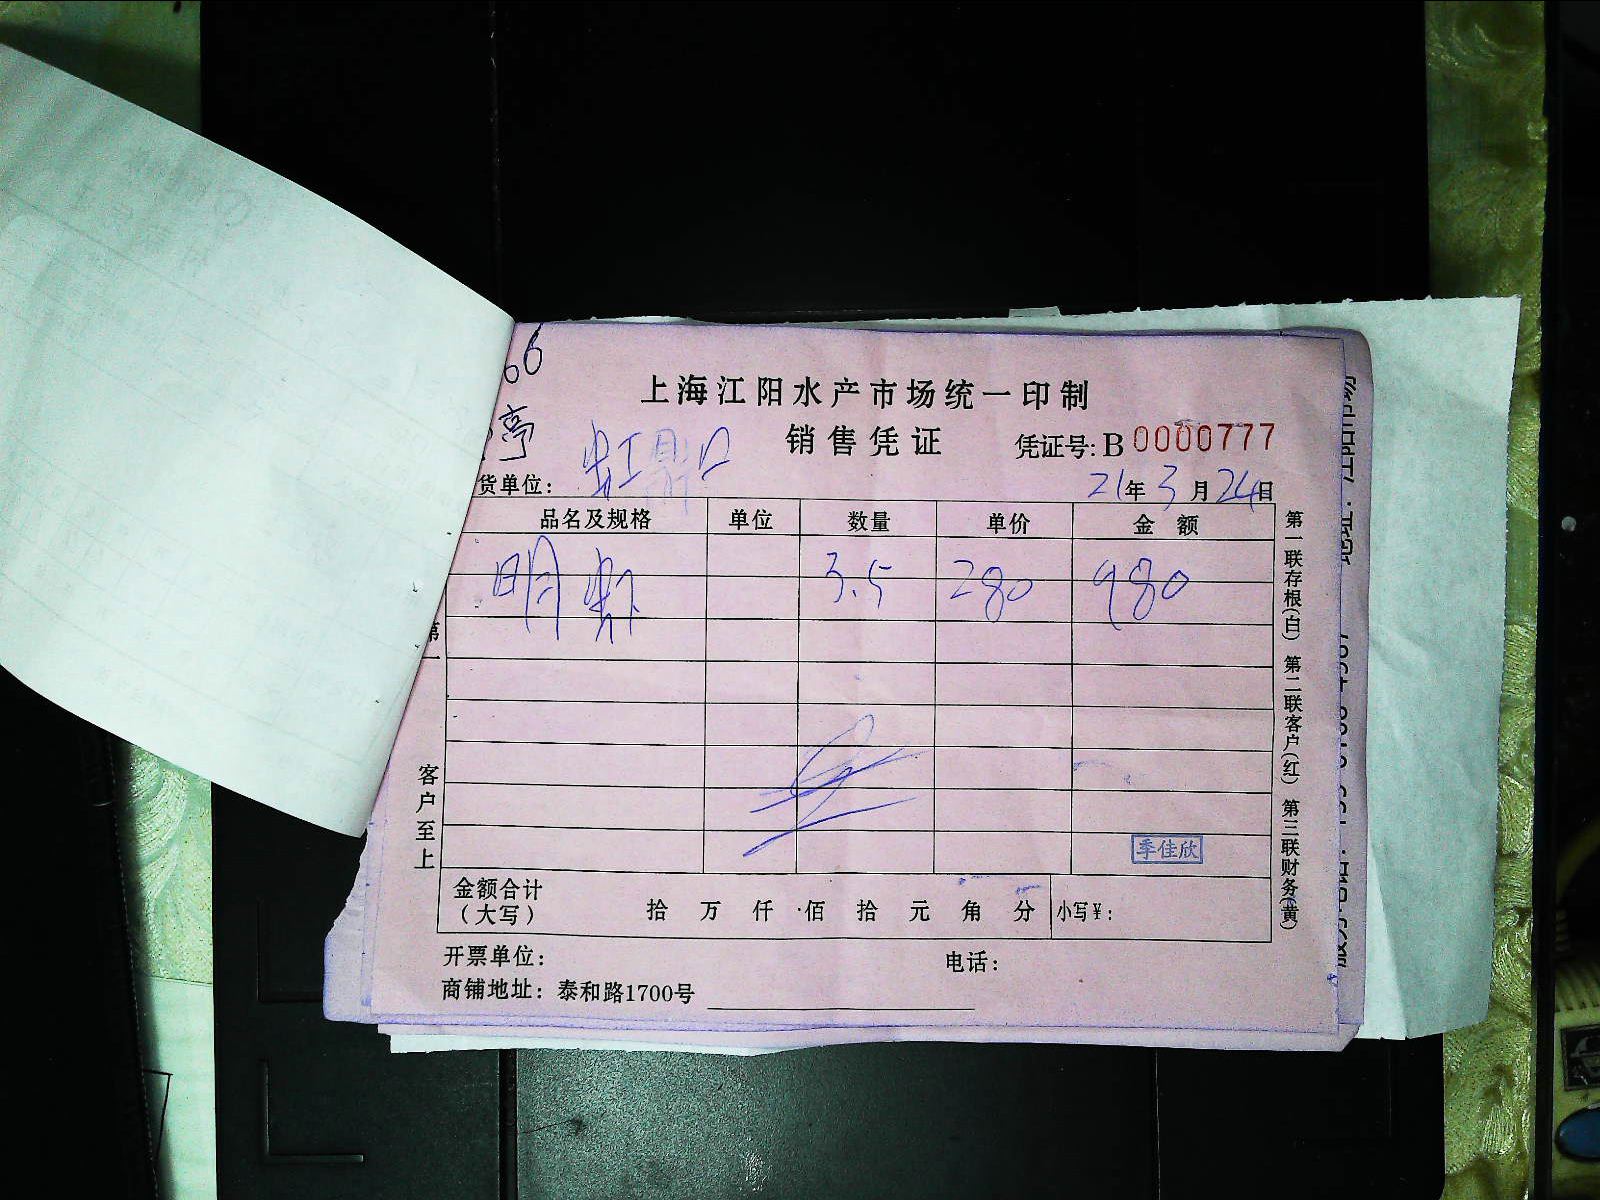 66
亭
上海江阳水产市场统一印制
销售凭证
凭证号: B 0000777
货单位: 虹口
21年3月24日
品名及规格 单位 数量 单价 金额
明虾 3.5 280 980
季佳欣
金额合计(大写) 拾 万 仟 佰 拾 元 角 分 小写¥:
开票单位: 电话:
商铺地址: 泰和路1700号
第一
客户至上
第一联存根(白) 第二联客户(红) 第三联财务(黄)